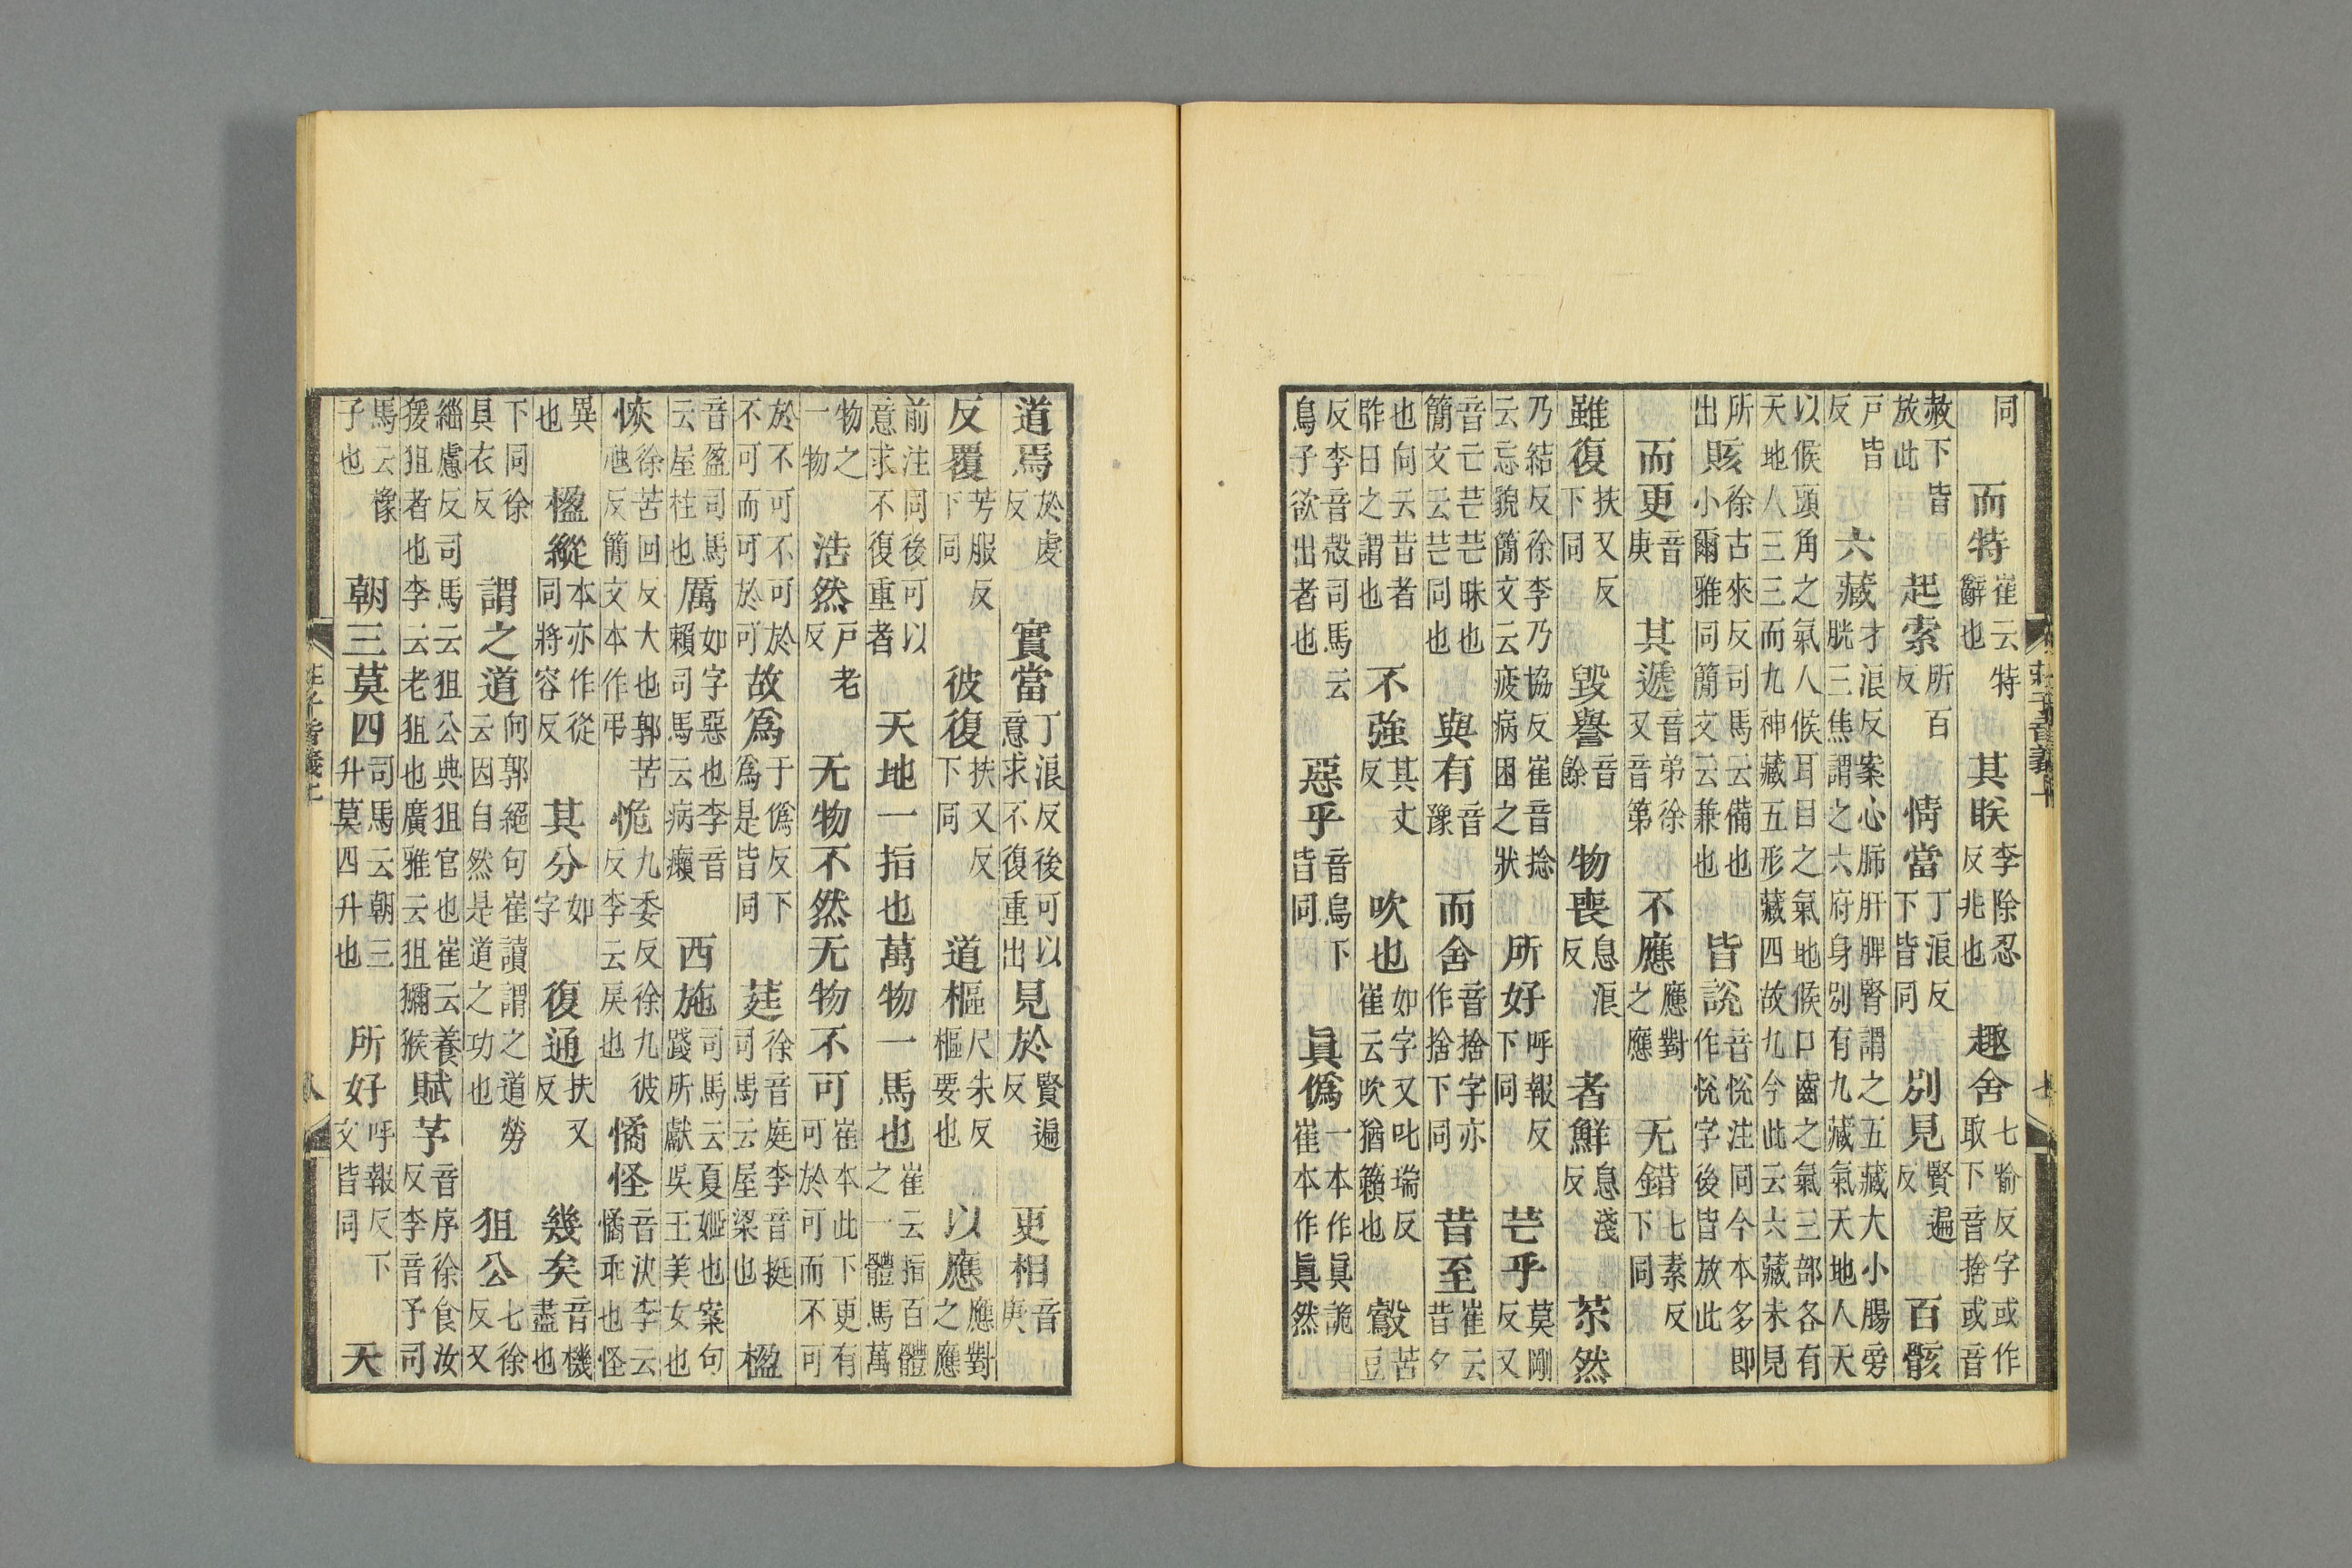 莊子音義上 七
同 而特崔云特辭也 其眹李除忍反兆也 趣舍七喻反字或作取下音捨或音
赦下皆放此 起索所百反 情當丁浪反下皆同 別見賢遍反 百骸
戶皆反 六藏才浪反案心肺肝脾腎謂之五藏大小腸旁胱三焦謂之六府身別有九藏氣天地人天
以候頭角之氣人候耳目之氣地候口齒之氣三部各有天地人三三而九神藏五形藏四故九今此云六藏未見
所出 賅徐古來反司馬云備也小爾雅同簡文云兼也 皆說音悅注同今本多即作悅字後皆放此
而更音庚 其遞音弟徐又音第 不應應對之應 无錯七素反下同
雖復扶又反下同 毀譽音餘 物喪息浪反 者鮮息淺反 苶然
乃結反徐李乃協反崔音捻云忘貌簡文云疲病困之狀 所好呼報反下同 芒乎莫剛反又
音亡芒芒昧也簡文云芒同也 與有音豫 而舍音捨字亦作捨下同 昔至崔云昔夕
也向云昔者昨日之謂也 不強其丈反 吹也如字又叱瑞反崔云吹猶籟也 鷇苦豆
反李音殼司馬云鳥子欲出者也 惡乎音烏下皆同 眞僞一本作眞詭崔本作眞然
道焉於虔反 實當丁浪反後可以意求不復重出 見於賢遍反 更相音庚
反覆芳服反下同 彼復扶又反下同 道樞尺朱反樞要也 以應應對之應
前注同後可以意求不復重者 天地一指也萬物一馬也崔云指百體之一體馬萬
物之一物 浩然戶老反 无物不然无物不可崔本此下更有可於可而不可
於不可不可於不可而可於可 故爲于僞反下爲是皆同 莛徐音庭李音挺司馬云屋梁也 楹
音盈司馬云屋柱也 厲如字惡也李音賴司馬云病癩 西施司馬云夏姬也案句踐所獻吳王美女也
恢徐苦回反大也郭苦虺反簡文本作弔 恑九委反徐九彼反李云戾也 憰怪音決李云憰乖也怪
異也 楹縱本亦作從同將容反 其分如字 復通扶又反 幾矣音機盡也
下同徐具衣反 謂之道向郭絕句崔讀謂之道勞云因自然是道之功也 狙公七徐反又
緇慮反司馬云狙公典狙官也崔云養猨狙者也李云老狙也廣雅云狙獼猴 賦芧音序徐食汝反李音予司
馬云橡子也 朝三莫四司馬云朝三升莫四升也 所好呼報反下文皆同 天
莊子音義上 八